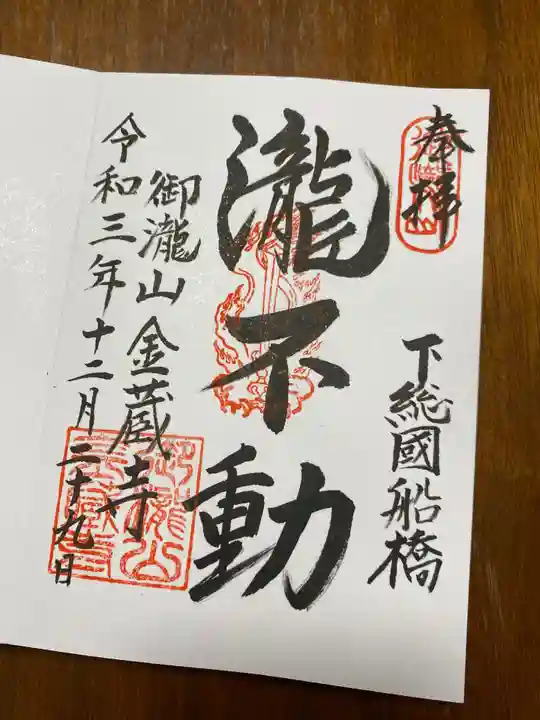 奉拝
下総國船橋
瀧不動
御瀧山金蔵寺
令和三年十二月二十九日